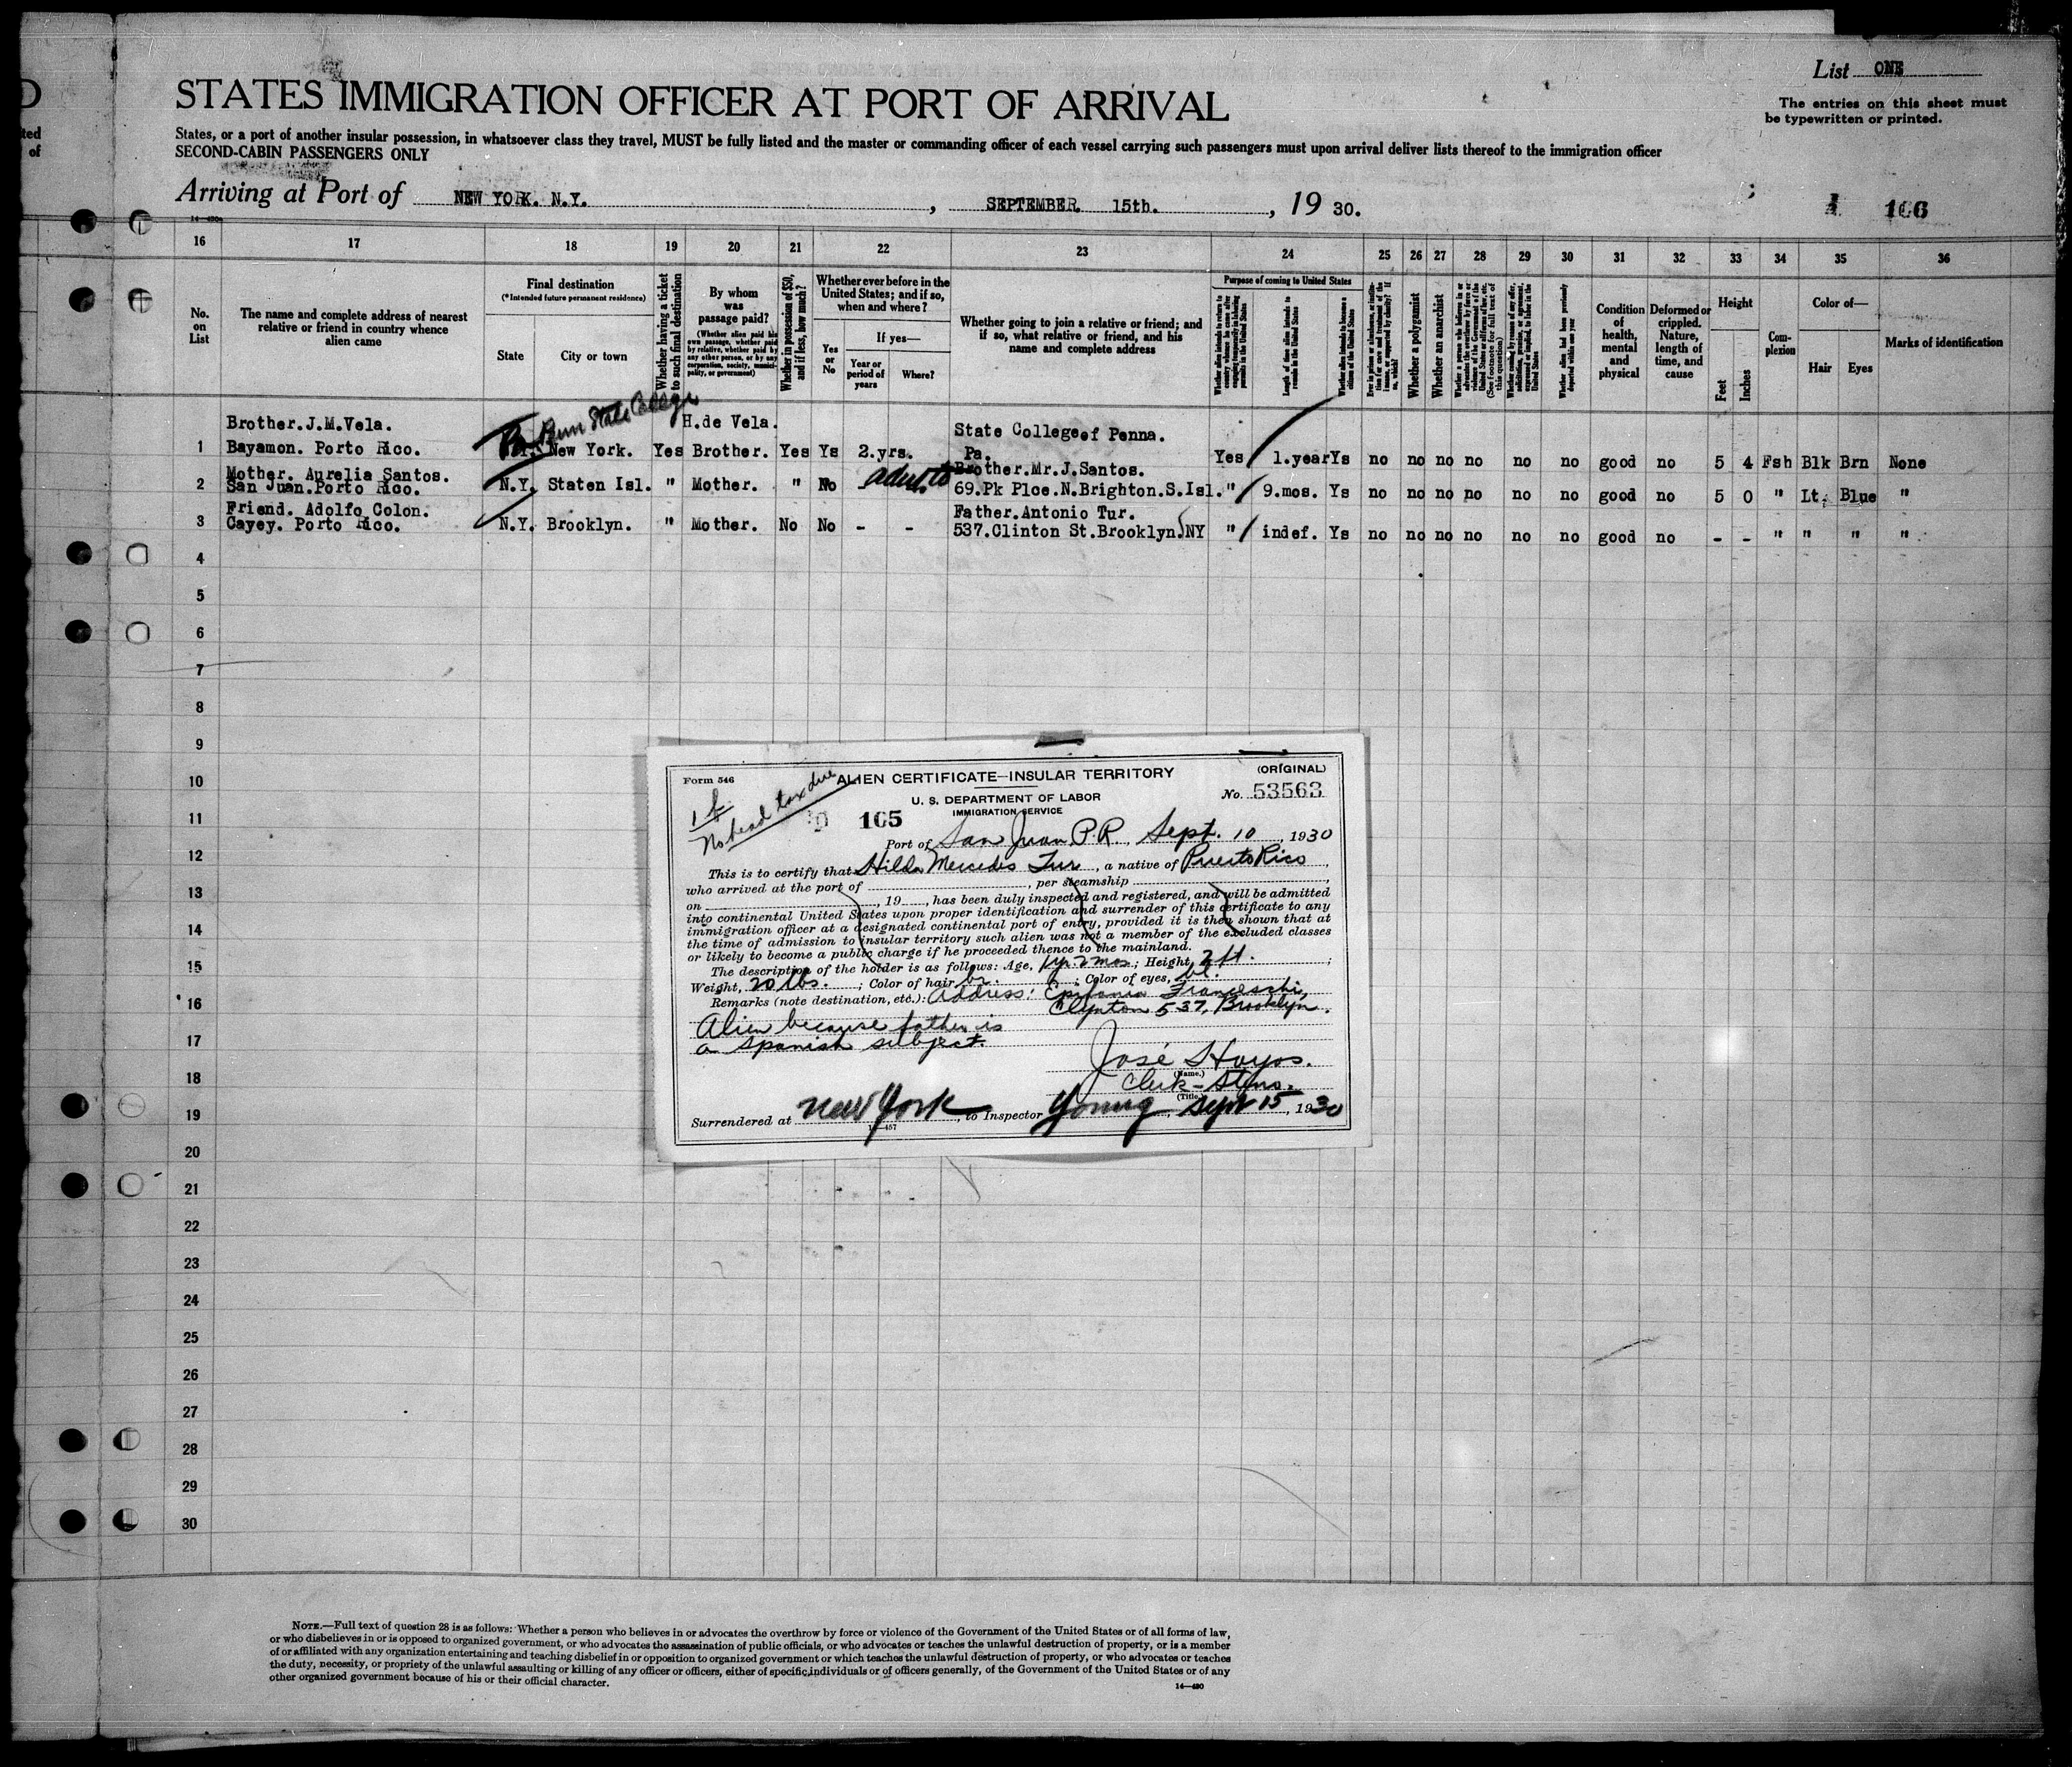 D
ted
of
List ONE
STATES IMMIGRATION OFFICER AT PORT OF ARRIVAL
The entries on this sheet must
be typewritten or printed.
States, or a port of another insular possession, in whatsoever class they travel, MUST be fully listed and the master or commanding officer of each vessel carrying such passengers must upon arrival deliver lists thereof to the immigration officer
SECOND-CABIN PASSENGERS ONLY
Arriving at Port of NEW YORK. N.Y. , SEPTEMBER 15th. , 19 30.
106
14—480
16 17 18 19 20 21 22 23 24 25 26 27 28 29 30 31 32 33 34 35 36
No.
on
List
The name and complete address of nearest
relative or friend in country whence
alien came
Final destination
(*Intended future permanent residence)
State City or town
Whether having a ticket
to such final destination
By whom
was
passage paid?
(Whether alien paid his
own passage, whether paid
by relative, whether paid by
any other person, or by any
corporation, society, munici-
pality, or government)
Whether in possession of $50,
and if less, how much?
Whether ever before in the
United States; and if so,
when and where?
Yes
or
No
If yes—
Year or
period of
years
Where?
Whether going to join a relative or friend; and
if so, what relative or friend, and his
name and complete address
Purpose of coming to United States
Length of time alien intends to
remain in the United States
Whether alien intends to become a
citizen of the United States
Whether a polygamist
Whether an anarchist
Whether alien had been previously
deported within one year
Condition
of
health,
mental
and
physical
Deformed or
crippled.
Nature,
length of
time, and
cause
Height
Feet
Inches
Com-
plexion
Color of—
Hair Eyes
Marks of identification
Pa. Penn State College
Brother.J.M.Vela. H.de Vela. State College of Penna.
1 Bayamon. Porto Rico. New York. Yes Brother. Yes Ys 2.yrs. Pa. Yes 1.year Ys no no no no no no good no 5 4 Fsh Blk Brn None
Mother. Aurelia Santos. Brother.Mr.J.Santos.
2 San Juan.Porto Rico. N.Y. Staten Isl. " Mother. " No 69.Pk Plce.N.Brighton.S.Isl. " 9.mos. Ys no no no no no no good no 5 0 " Lt. Blue "
Friend. Adolfo Colon. Father.Antonio Tur.
3 Cayey. Porto Rico. N.Y. Brooklyn. " Mother. No No - - 537.Clinton St.Brooklyn.NY " indef. Ys no no no no no no good no - - " " " "
4
5
6
7
8
9
10
11
12
13
14
15
16
17
18
19
20
21
22
23
24
25
26
27
28
29
30
Form 546
ALIEN CERTIFICATE—INSULAR TERRITORY
(ORIGINAL)
No head tax due
U. S. DEPARTMENT OF LABOR
No. 53563
IMMIGRATION SERVICE
105
Port of San Juan P.R., Sept. 10, 1930
This is to certify that Hilda Mercedes Tur, a native of Puerto Rico,
who arrived at the port of , per steamship ,
on , 19 , has been duly inspected and registered, and will be admitted
into continental United States upon proper identification and surrender of this certificate to any
immigration officer at a designated continental port of entry, provided it is then shown that at
the time of admission to insular territory such alien was not a member of the excluded classes
or likely to become a public charge if he proceeded thence to the mainland.
The description of the holder is as follows: Age, 1 yr. 2 mos; Height, 2 ft. ;
Weight, 20 lbs. ; Color of hair br. ; Color of eyes, bl.
Remarks (note destination, etc.): Address: Epifania Franceschi,
Clynton 537, Brooklyn.
Alien because father is
a Spanish subject.
José Hoyos.
(Name.)
Clerk-Steno.
(Title.)
Surrendered at New York, to Inspector Young, Sept 15, 1930
NOTE.—Full text of question 28 is as follows: Whether a person who believes in or advocates the overthrow by force or violence of the Government of the United States or of all forms of law,
or who disbelieves in or is opposed to organized government, or who advocates the assassination of public officials, or who advocates or teaches the unlawful destruction of property, or is a member
of or affiliated with any organization entertaining and teaching disbelief in or opposition to organized government or which teaches the unlawful destruction of property, or who advocates or teaches
the duty, necessity, or propriety of the unlawful assaulting or killing of any officer or officers, either of specific individuals or of officers generally, of the Government of the United States or of any
other organized government because of his or their official character.
14—480